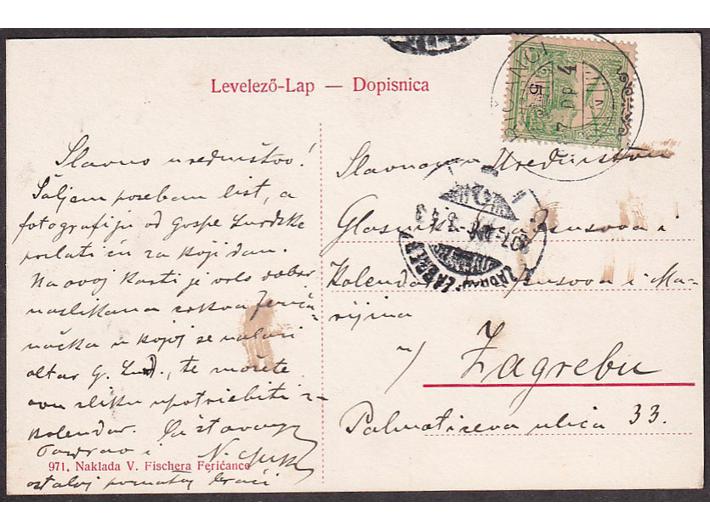 Levelező-Lap — Dopisnica
Slavno uredničtvo!
Šaljem poseban list, a
fotografiju od Gospe Lurdske
poslati ću za koji dan.
Na ovoj karti je vrlo dobro
naslikana crkva Ferića-
načka u kojoj se nalazi
oltar G. Lurd., te možete
ovu sliku upotriebiti z
kalendar. Sa štovanjem
Pozdrav i N.
ostaloj braći
971. Naklada V. Fischera Feričance
Slavnomu Uredničtvu
Glasnika Isusova i
Kalendara Isusova i Ma-
rijina
u/ Zagrebu
Palmotićeva ulica 33.
5
ZAGREB
ZÁGRÁB